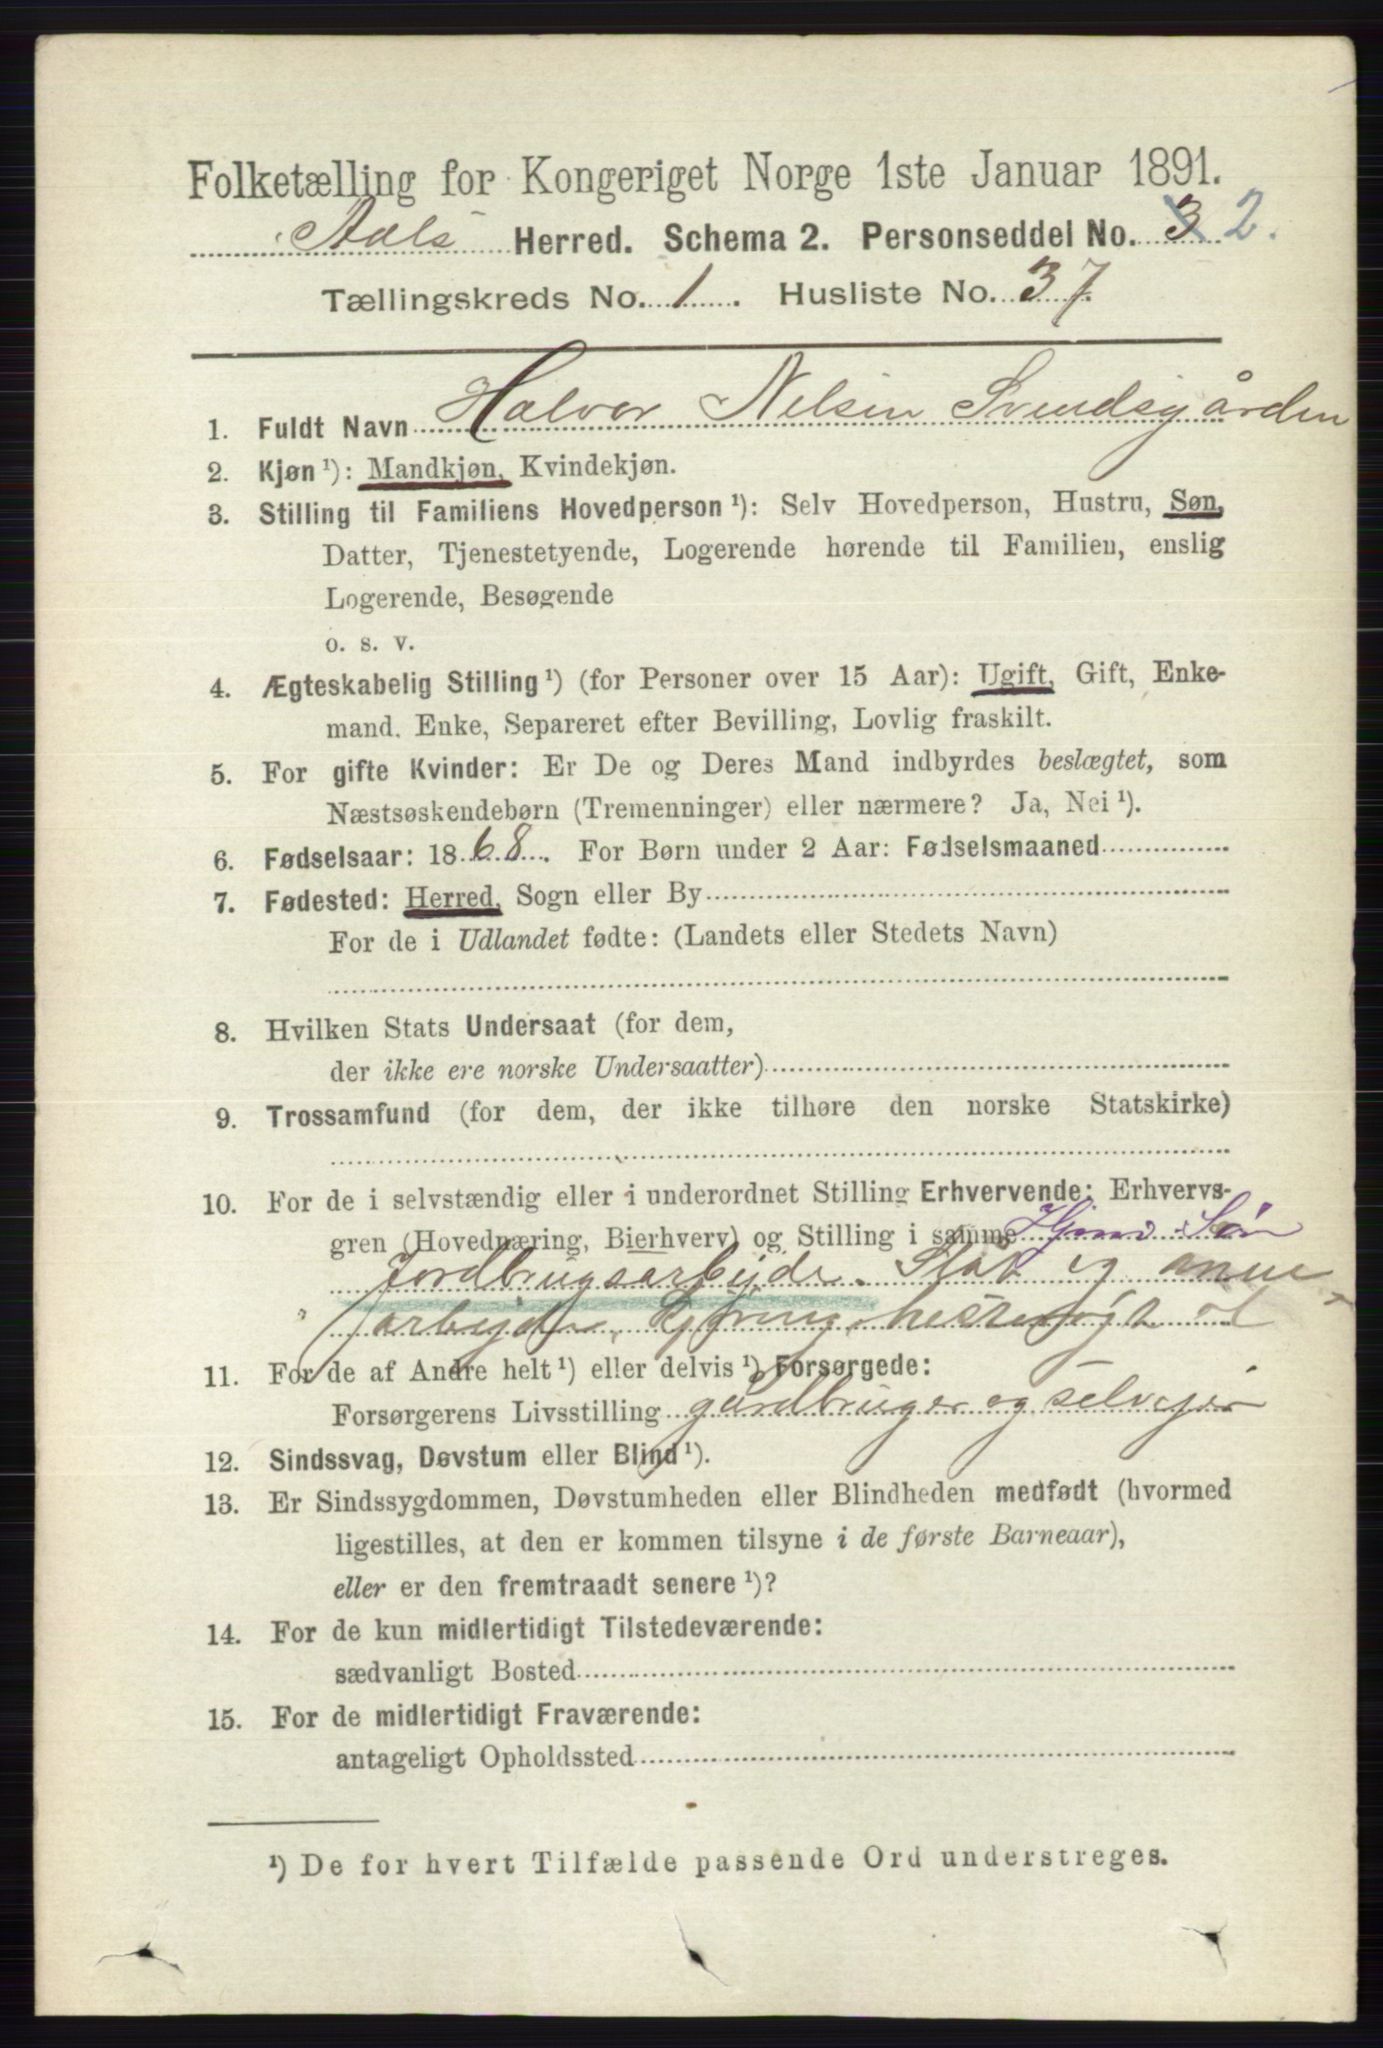 Folketælling for Kongeriget Norge 1ste Januar 1891.
Aals Herred. Schema 2. Personseddel No. 3 2.
Tællingskreds No. 1. Husliste No. 37.
1. Fuldt Navn Halvor Nelsen Svendsgården
2. Kjøn ¹): Mandkjøn, Kvindekjøn.
3. Stilling til Familiens Hovedperson ¹): Selv Hovedperson, Hustru, Søn,
Datter, Tjenestetyende, Logerende hørende til Familien, enslig
Logerende, Besøgende
o. s. v.
4. Ægteskabelig Stilling ¹) (for Personer over 15 Aar): Ugift, Gift, Enke-
mand. Enke, Separeret efter Bevilling, Lovlig fraskilt.
5. For gifte Kvinder: Er De og Deres Mand indbyrdes beslægtet, som
Næstsøskendebørn (Tremenninger) eller nærmere? Ja, Nei ¹).
6. Fødselsaar: 1868. For Børn under 2 Aar: Fødselsmaaned
7. Fødested: Herred, Sogn eller By
For de i Udlandet fødte: (Landets eller Stedets Navn)
8. Hvilken Stats Undersaat (for dem,
der ikke ere norske Undersaatter)
9. Trossamfund (for dem, der ikke tilhøre den norske Statskirke)
10. For de i selvstændig eller i underordnet Stilling Erhvervende: Erhvervs-
gren (Hovednæring, Bierhverv) og Stilling i samme Søn
Jordbrugsarbejde. og
11. For de af Andre helt ¹) eller delvis ¹) Forsørgede:
Forsørgerens Livsstilling gårdbruger og selvejer
12. Sindssvag, Døvstum eller Blind ¹).
13. Er Sindssygdommen, Døvstumheden eller Blindheden medfødt (hvormed
ligestilles, at den er kommen tilsyne i de første Barneaar),
eller er den fremtraadt senere ¹)?
14. For de kun midlertidigt Tilstedeværende:
sædvanligt Bosted
15. For de midlertidigt Fraværende:
antageligt Opholdssted
¹) De for hvert Tilfælde passende Ord understreges.